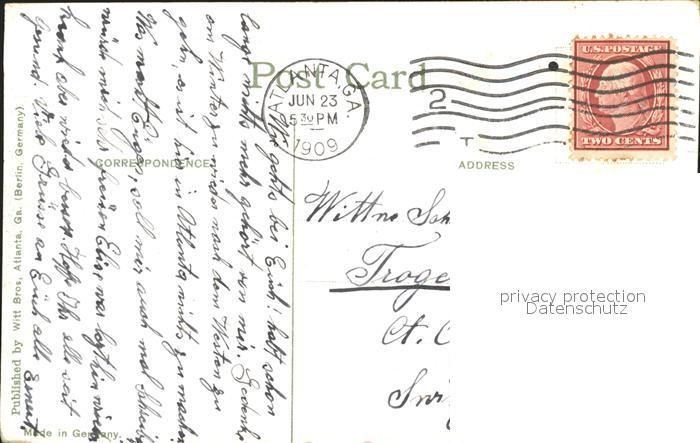 Post Card
ATLANTA, GA.
JUN 23
5 30 PM
1909
2
T
U.S. POSTAGE
TWO CENTS
CORRESPONDENCE
ADDRESS
Wie geht's bei Euch? habt schon
lange nichts mehr gehört von mir. Gedenke
im Winter wieder nach dem Westen zu
gehn, es ist hier in Atlanta nichts zu machen
Was macht soll mir auch mal schreiben
würde mich freuen
wieder besser. Hoffe Ihr alle seit
gesund. Viele Grüsse an Euch alle Ernst.
Wittwe Sch
Troge
Ct.
privacy protection
Datenschutz
Published by Witt Bros, Atlanta, Ga. (Berlin, Germany)
Made in Germany.